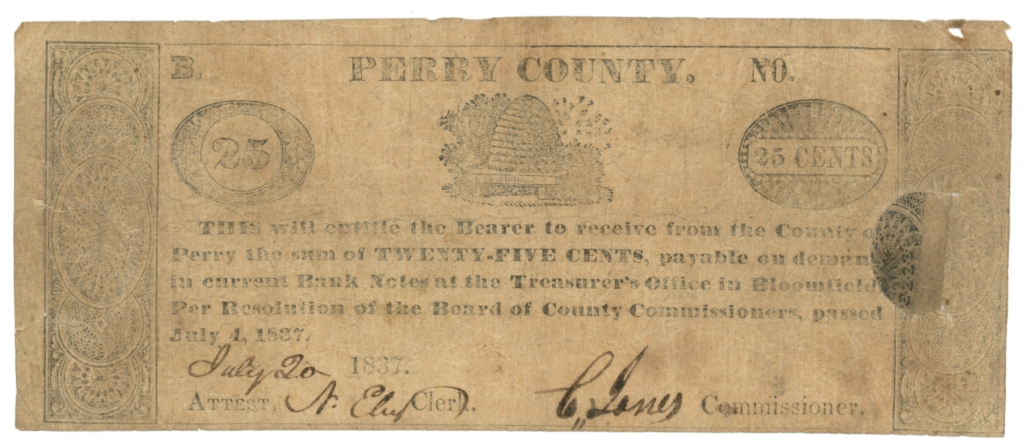 B. PERRY COUNTY. NO.
25
25 CENTS
THIS will entitle the Bearer to receive from the County of
Perry the sum of TWENTY-FIVE CENTS, payable on deman
in current Bank Notes at the Treasurer's Office in Bloomfield
Per Resolution of the Board of County Commissioners, passed
July 4, 1837.
July 20 1837.
ATTEST, N. Eby Clerk. C. Jones Commissioner.